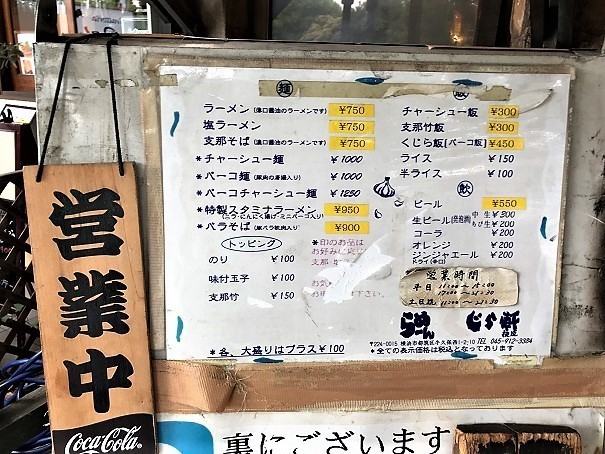 営業中
Coca-Cola
麺
ラーメン (濃口醤油のラーメンです) ¥750
塩ラーメン ¥750
支那そば (濃口醤油のラーメンです) ¥750
*チャーシュー麺 ¥1000
*パーコ麺 ¥1000
*パーコチャーシュー麺 ¥1250
*特製スタミナラーメン ¥950
(ニラ・にんにく揚げ・ミニパーコ入り)
*バラそば (豚バラ軟肉入り) ¥900
トッピング
のり ¥100
味付玉子 ¥100
支那竹 ¥150
*印のお品は
お好みに応じ
支那
お気
お申
下さい。
*各、大盛りはプラス¥100
飯
チャーシュー飯 ¥300
支那竹飯 ¥300
くじら飯[パーコ飯] ¥450
ライス ¥150
半ライス ¥100
飲
ビール ¥550
生ビール 中生¥300
ちび生¥200
コーラ ¥200
オレンジ ¥200
ジンジャエール ¥200
ドライ(辛口)
営業時間
平日
土日祝
らぁめん くじら軒
〒224-0015 横浜市都筑区牛久保西1-2-10 TEL 045-912-3384
*全ての表示価格は税込となっております
裏にございます